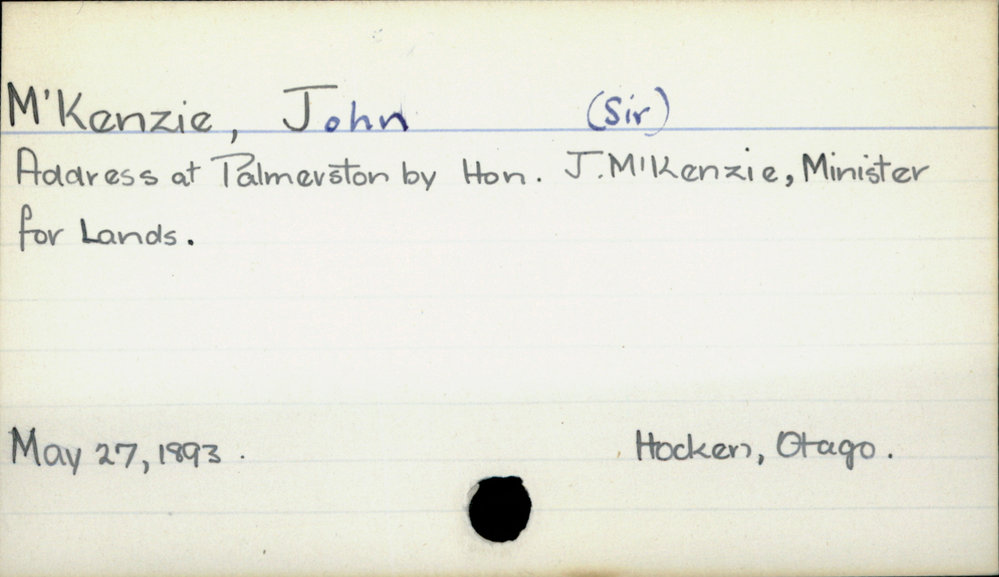 M'Kenzie, John (Sir)
Address at Palmerston by Hon. J. M'Kenzie, Minister
for Lands.
May 27, 1893.
Hocken, Otago.